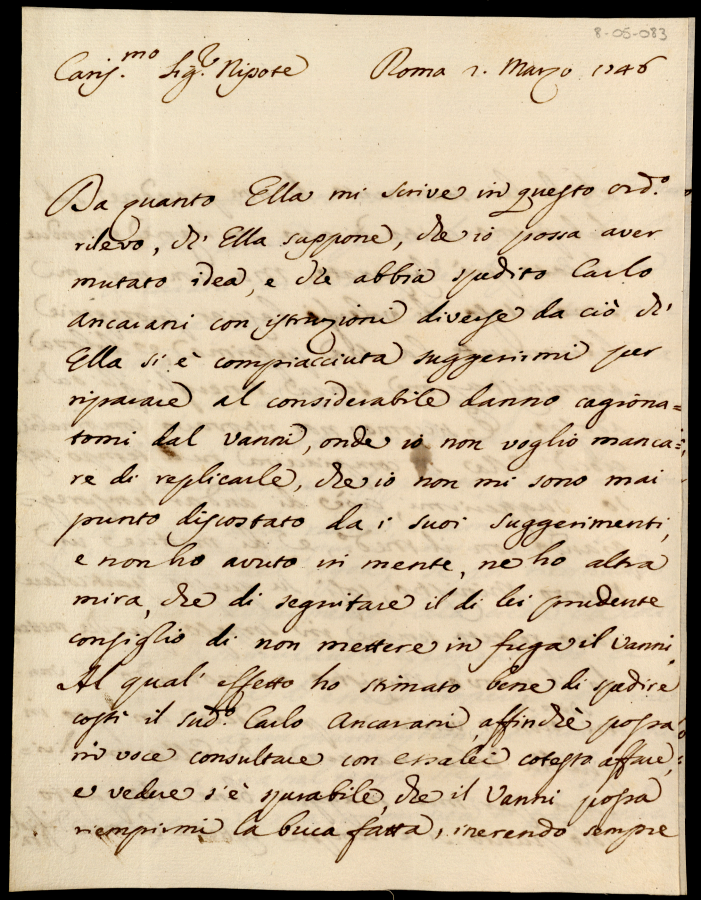 8-05-083
Cariss.mo Sig.re Nipote Roma 2. Marzo 1746
Da quanto Ella mi scrive in questo ord.o
rilevo, ch' Ella suppone, che io possa aver
mutato idea, e che abbia spedito Carlo
Ancarani con istruzioni diverse da ciò ch'
Ella si è compiacciuta suggerirmi per
riparare al considerabile danno cagiona=
tomi dal Vanni, onde io non voglio manca=
re di replicarle, che io non mi sono mai
punto discostato da i suoi suggerimenti,
e non ho avuto in mente, ne ho altra
mira, che di seguitare il di lei prudente
consiglio di non mettere in fuga il Vanni.
Al qual' effetto ho stimato bene di spedire
costì il sud.o Carlo Ancarani, affinchè possa
in voce consultare con essalei cotesto affare,
e vedere s'è sperabile, che il Vanni possa
riempirmi la buca fatta, inerendo sempre